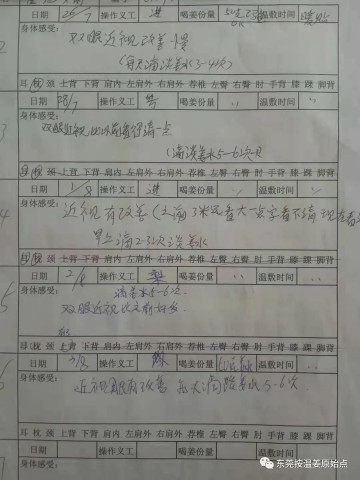 日期 25/7 操作义工 喝姜份量 温敷时间
身体感受:
双眼近视改善慢
(每天滴淡姜水3-4次)
耳 枕 颈 上背 下背 肩内 左肩外 右肩外 荐椎 左臀 右臀 肘 手背 膝 踝 脚背
日期 28/7 操作义工 喝姜份量 〃 温敷时间 〃
身体感受:
双眼近视比以前看得清一点
(滴淡姜水5-6次)
耳 枕 颈 上背 下背 肩内 左肩外 右肩外 荐椎 左臀 右臀 肘 手背 膝 踝 脚背
日期 1/8 操作义工 喝姜份量 〃 温敷时间 〃
身体感受:
近视有改善(之前3米远看大一点字看不清 现在看
早上滴2-3次淡姜水
耳 枕 颈 上背 下背 肩内 左肩外 右肩外 荐椎 左臀 右臀 肘 手背 膝 踝 脚背
日期 2/8 操作义工 喝姜份量 〃 温敷时间 〃
身体感受:
滴姜水5-6次
双眼近视比之前好些
耳 枕 颈 上背 下背 肩内 左肩外 右肩外 荐椎 左臀 右臀 肘 手背 膝 踝 脚背
日期 3/8 操作义工 喝姜份量 温敷时间 〃
身体感受:
近视眼有改善 每天滴姜水5-6次
耳 枕 颈 上背 下背 肩内 左肩外 右肩外 荐椎 左臀 右臀 肘 手背 膝 踝 脚背
日期 操作义工 喝姜份量 温敷时间
身体感受:
东莞按温姜原始点